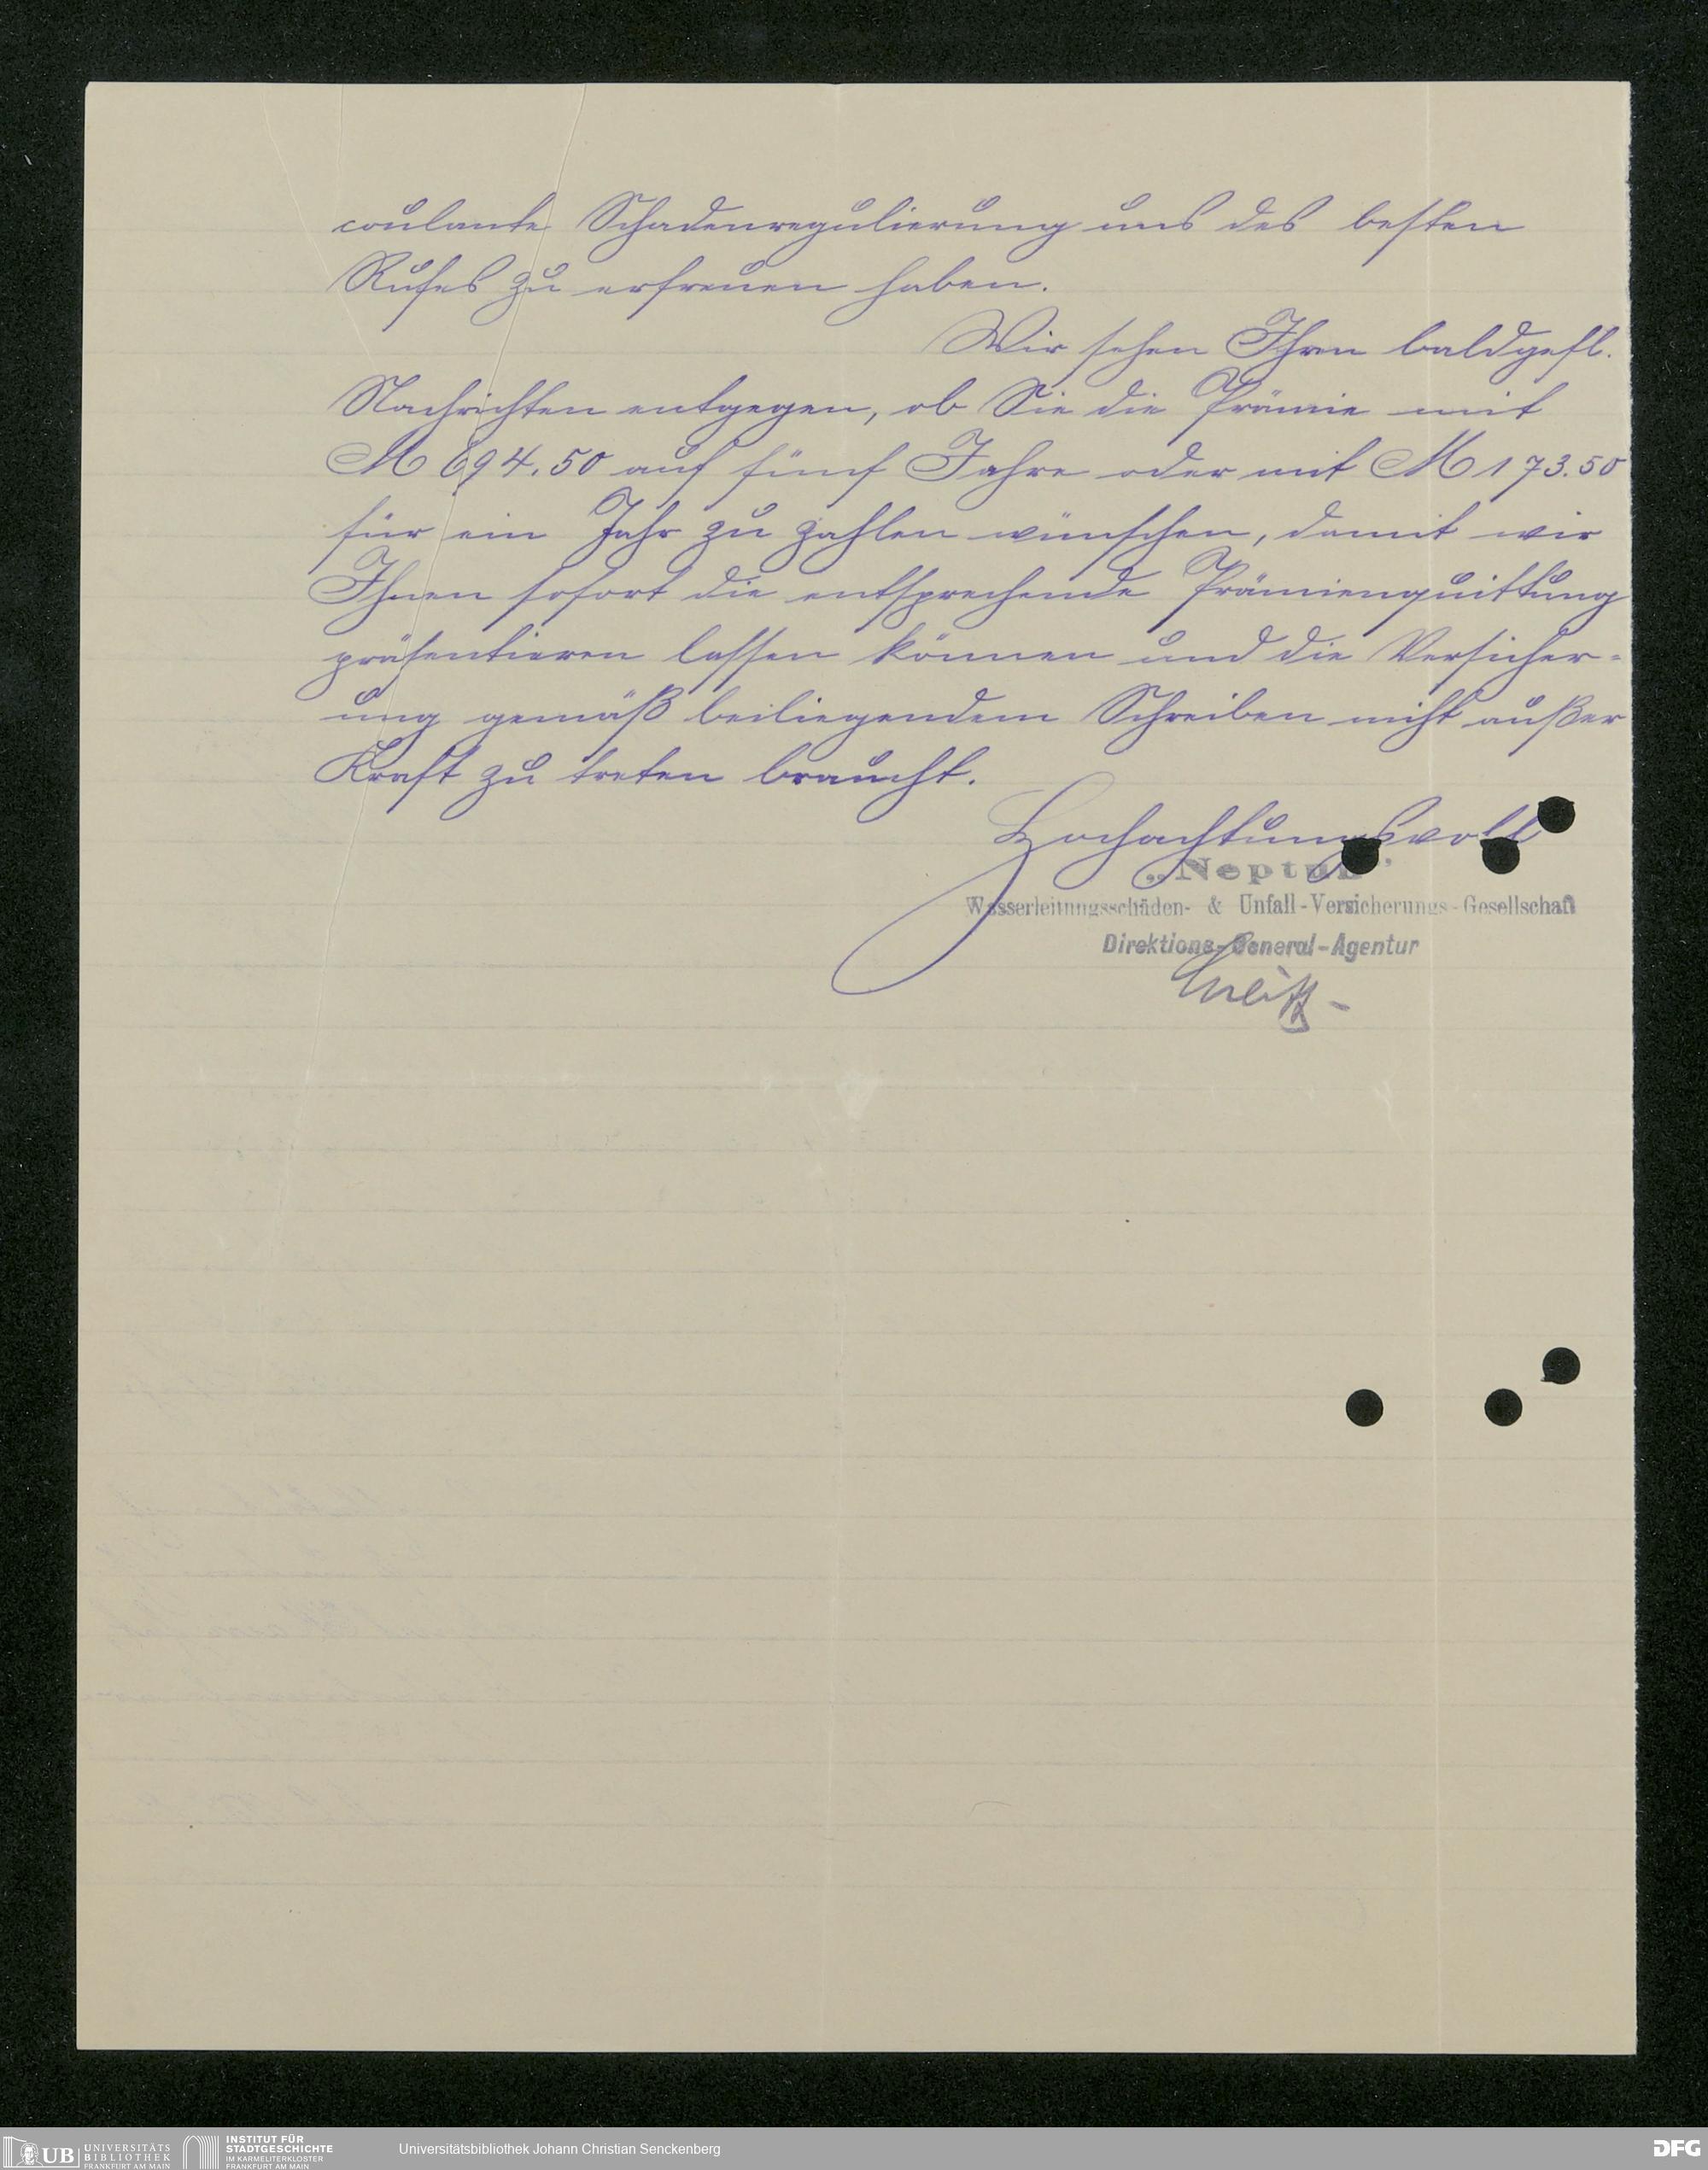 coulante Schadenregulierung uns des besten
Rufes zu erfreuen haben.
Wir sehen Ihren baldgefl.
Nachrichten entgegen, ob Sie die Prämie mit
M 694.50 auf fünf Jahre oder mit M 173.50
für ein Jahr zu zahlen wünschen, damit wir
Ihnen sofort die entsprechende Prämienquittung
präsentieren lassen können und die Versicher-
ung gemäß beiliegendem Schreiben nicht außer
Kraft zu treten braucht.
Hochachtungsvoll
„Neptun“
Wasserleitungsschäden- & Unfall-Versicherungs-Gesellschaft
Direktions-General-Agentur
UB UNIVERSITÄTS
BIBLIOTHEK
FRANKFURT AM MAIN
INSTITUT FÜR
STADTGESCHICHTE
IM KARMELITERKLOSTER
FRANKFURT AM MAIN
Universitätsbibliothek Johann Christian Senckenberg
DFG